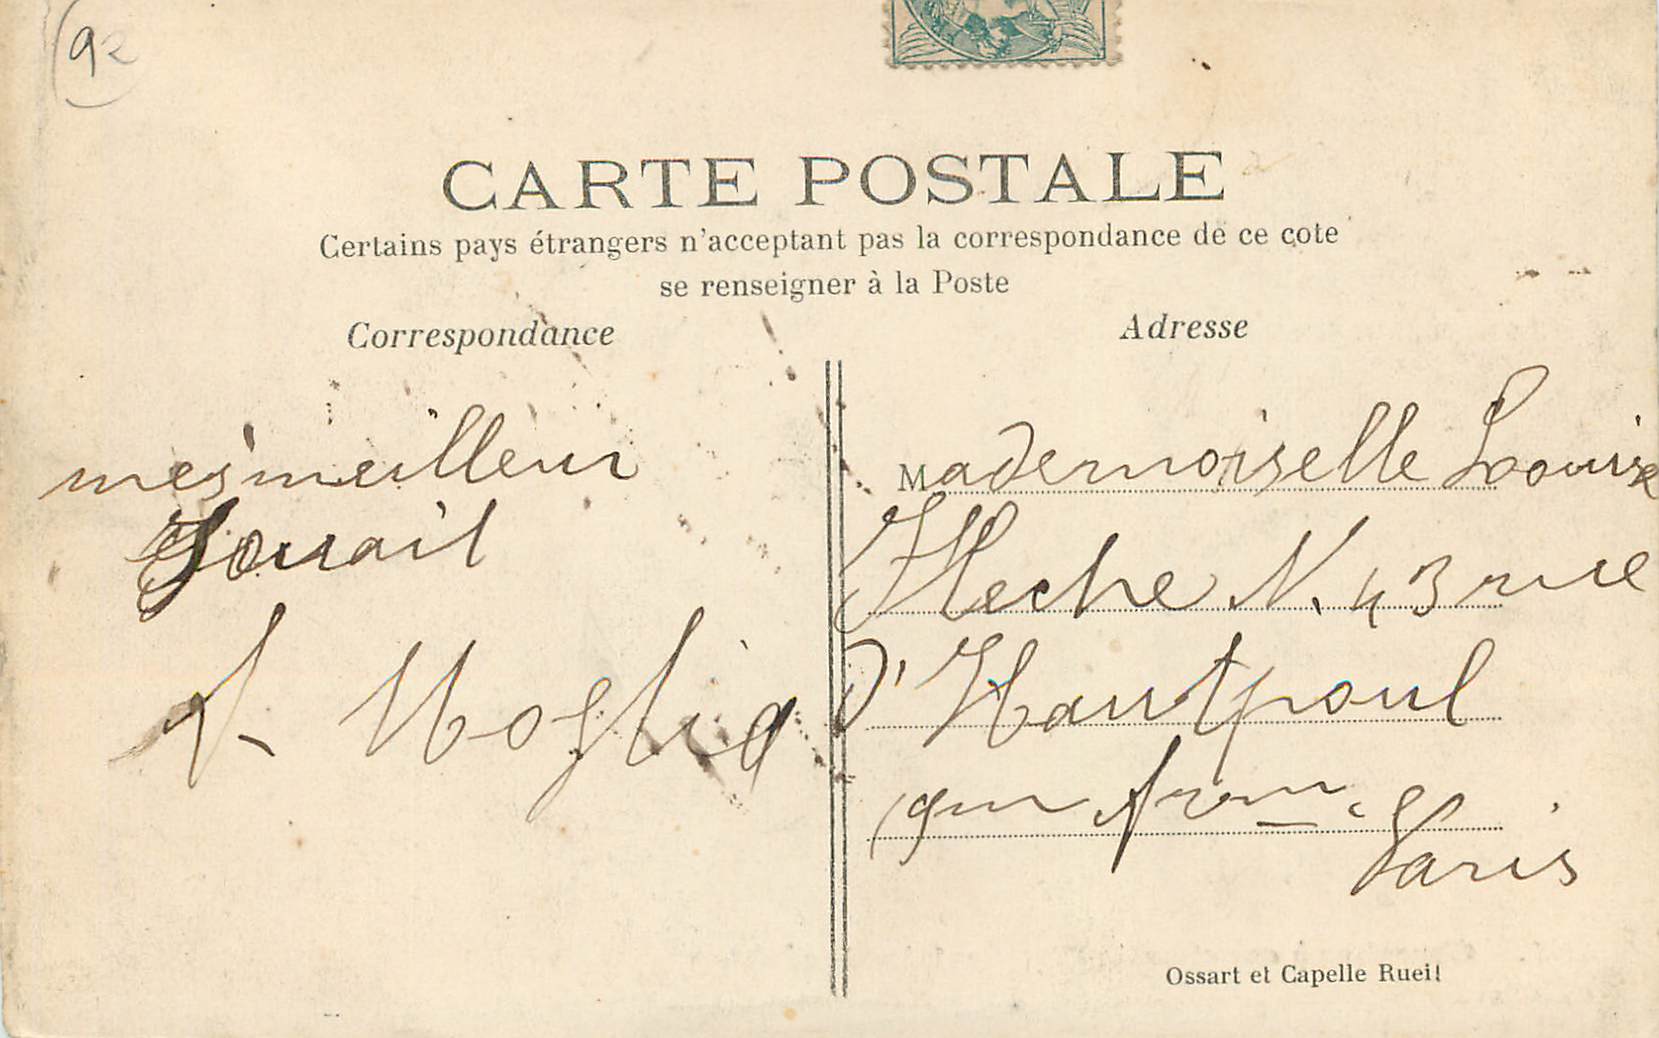 92
CARTE POSTALE
Certains pays étrangers n'acceptant pas la correspondance de ce cote
se renseigner à la Poste
Correspondance
mes meilleur
Souait
A. Moglia
Adresse
Mademoiselle Loouise
Fleche N. 43 rue
D'Hautpoul
Paris
Ossart et Capelle Rueil